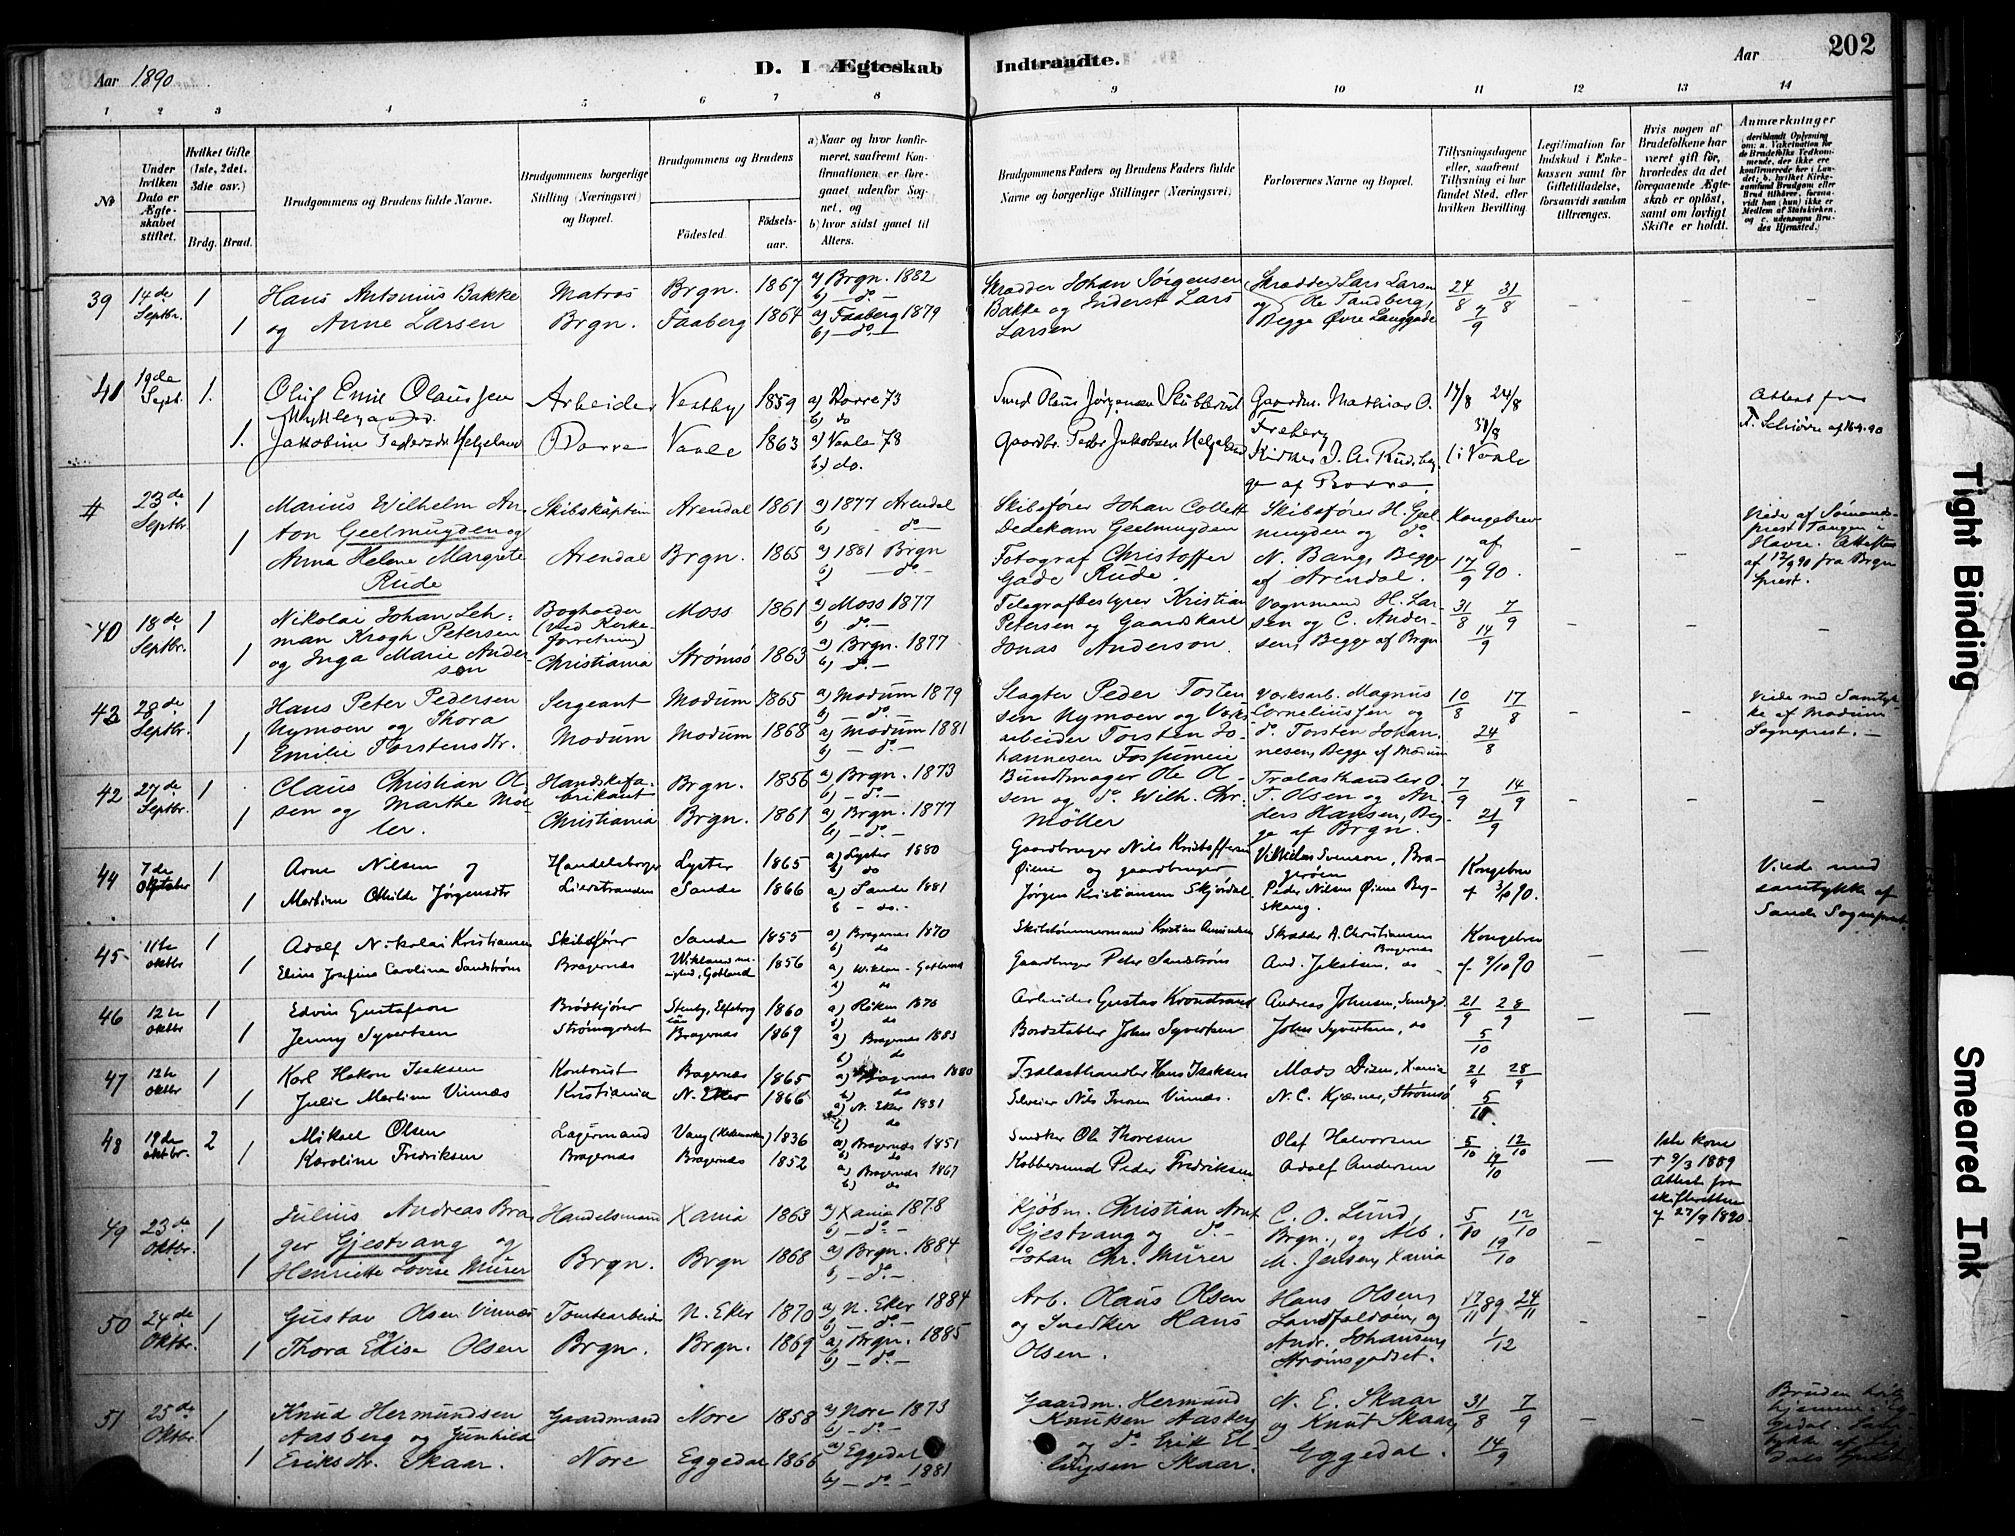 Aar 1890.
D. I Ægteskab Indtraadte.
Aar
202
1 2 3 4 5 6 7 8 9 10 11 12 13 14
No
Under hvilken Dato er Ægteskabet stiftet.
Hvilket Gifte (1ste, 2det, 3die osv.)
Brdg. Brud.
Brudgommens og Brudens fulde Navne.
Brudgommens borgerlige Stilling (Næringsvei) og Bopæl.
Brudgommens og Brudens
Fødested.
Fødsels-aar.
a) Naar og hvor konfirmeret, saafremt Konfirmationen er foregaaet udenfor Sognet, og
b) hvor sidst gaaet til Alters.
Brudgommens Faders og Brudens Faders fulde Navne og borgerlige Stillinger (Næringsvei).
Forlovernes Navne og Bopæl.
Tillysningsdagene eller, saafremt Tillysning ei har fundet Sted, efter hvilken Bevilling
Legitimation for Indskud i Enkekassen samt for Giftetilladelse, forsaavidt saadan tiltrænges.
Hvis nogen af Brudefolkene har været gift før, hvorledes da det foregaaende Ægteskab er opløst, samt om lovligt Skifte er holdt.
Anmærkninger
39 14de Septbr. 1 1
Hans Antonius Bakke
og Anne Larsen
Matros
Brgn.
Brgn. 1867
Faaberg 1864
a) Brgn. 1882
b) — do. —
a) Faaberg 1879
b) — do. —
Skrædder Johan Jørgensen
Bakke og Inderst Lars
Larsen
Skrædder Lars Larsen
og Ole Tandberg,
Begge Øvre Langgade
24/8 31/8
7/9
41 19de Septb. 1. 1.
Oluf Emil Olaussen
Jakobine Pedersdr Helgeland
Arbeider
Borre
Vestby 1859
Vaale 1863
a) Borre 73
b) do
a) Vaale 78
b) do.
Smed Olaus Jørgensen Skubberud
Gaardbr. Peder Jakobsen Helgeland
Gaardm. Mathias O.
Freberg
17/8 24/8
31/8
i Vaale
Attest fra
23de Septbr. 1 1
Marius Wilhelm An-
ton Geelmuyden og
Anna Helene Margrete
Rude
Skibskaptein
Arendal
Arendal 1861
Brgn. 1865
a) 1877 Arendal
b) - do —
a) 1881 Brgn
b) — do —
Skibsfører Johan Collett
Dedekam Geelmuyden
Fotograf Christoffer
Gade Rude.
Skibsfører H. Geel-
muyden og do
N. Bang, Begge
af Arendal.
Kongebrev
af
17/9 90.
Viede af Sømands-
prest Tangen i
Havre. Attest
af 12/9 90 fra Brgn
prest.
40 18de Septbr. 1 1
Nikolai Johan Leh-
man Krogh Petersen
og Inga Marie Ander-
sen
Bogholder
forretning)
Christiania
Moss 1861
Strømsø 1863
a) Moss 1877
b) — do. —
a) Brgn. 1877
b) — do. —
Telegrafbestyrer Kristian
Petersen og Gaardskarl
Jonas Anderson.
Vognmand H. Lar-
sen og C. Ander-
sen, Begge af Brgn
31/8 7/9
14/9
43 28de Septbr. 1 1
Hans Peter Pedersen
Nymoen og Thora
Emilie Torstensdr.
Sergeant
Modum
Modum 1865
Modum 1868
a) Modum 1879
b) — do. —
a) Modum 1881
b) — do. —
Slagter Peder Tosten
sen Nymoen og Værks
arbeider Torsten Jo-
hannesen Fossumeie
Værksarb. Magnus
Corneliussen og
do. Torsten Johan-
nesen, Begge af Modum
10/8 17/8
24/8
Viede med Samtyk-
ke af Modum
Sogneprest. —
42 27de Septbr. 1 1
Claus Christian Ol-
sen og Marthe Møl-
ler.
Handskefa-
brikant
Christiania
Brgn. 1856
Brgn. 1861
a) Brgn. 1873
b) — do. —
a) Brgn. 1877
b) — do. —
Bundtmager Ole Ol-
sen og do. Wilh. Chr.
Möller
Trælasthandler O.
T. Olsen og An-
ders Hansen, Beg-
ge af Brgn.
7/9 14/9
21/9
44 7de Oktober 1 1
Arne Nilsen og
Martine Othilde Jørgensdtr
Handelsborger
Lierstranden
Lyster 1865
Sande 1866
a) Lyster 1880
b) do
a) Sande 1881
b — do. —
Gaardbruger Nils Kristoffersen
Øiene og gaardbruger
Jørgen Kristiansen Skjørdal
Vilhelm Svenson, Bra-
gerøen
Peder Nilsen Øiene Beg-
Skoug.
Kongebrev
af 3/10 90.
Viede med
samtykke af
Sande Sogneprest.
45 11te Oktbr 1 1
Adolf Nikolai Kristiansen
Eline Josefine Carolina Sandström
Skibsfører
Bragernes
Sande 1855
Wiklaus me-
nighed, Gotland 1856
a) Bragernes 1870
b) do
a) Wiklau - Gotland
b) do
Skibstømmermand Kristian Amundsen
Gaardbruger Peter Sandström
Skrædder A. Christiansen
Bragernes
And. Jakobsen, do
Kongebrev
af 9/10 90
46 12te Oktbr 1 1
Edvin Gustafson
Jenny Syvertsen
Brødkjører
Strømsgodset
Stenby, Elfsborg
län 1860
Bragernes 1869
a) Röken 1876
b) do
a) Bragernes 1883
b) do
Arbeider Gustav Krondstrand
Bordstabler Johan Syvertsen
Andreas Johnsen, Sundgd.
Johan Syvertsen, do
21/9 28/9
5/10
47 12te Oktbr 1 1
Karl Hakon Isaksen
Julie Martine Vinnæs
Kontorist
Kristiania
Bragernæs 1865
N. Eker 1866
a) Bragernes 1880
b) do
a) N. Eker 1881
b) do
Trælasthandler Hans Isaksen
Selveier Nils Iverson Vinnæs.
Mads Disen, Xania
N. C. Kjærner, Strømsø
21/9 28/9
5/10
48 19de Oktbr. 2 1
Mikael Olsen
Karoline Fredriksen
Lagermand
Bragernæs
Vang (Hedemarken) 1836
Bragernæs 1852
a) Bragernæs 1851
b) do
a) Bragernæs 1867
b) do
Snedker Ole Thoresen
Kobbersmed Peder Fredriksen
Olaf Halvorsen
Adolf Andersen
5/10 12/10
19/10
1ste Kone
† 9/3 1889
Attest fra
skifteretten
af 27/9 1890.
49 23de Oktbr. 1 1
Julius Andreas Bra-
ger Gjestvang og
Henriette Lovise Mürer
Handelsmand
Brgn.
Xania 1863
Brgn 1868
a) Xania 1878
b) — do. —
a) Brgn. 1884
b) — do. —
Kjøbm. Christian Arnt
Gjestvang og do. —
Johan Chr. Mürer
C. O. Lund,
Brgn., og Alb.
M. Jensen, Xania
5/10 12/10
19/10
50 24de Oktbr. 1 1
Gustav Olsen Vinnæs
Thora Elise Olsen
Tomtearbeider
Brgn.
N. Eker 1870
Brgn. 1869
a) N. Eker 1884
b) — do. —
a) Brgn. 1885
b) — do. —
Arb. Olaus Olsen
og Snedker Hans
Olsen.
Hans Olsen,
Landfaldøen, og
Andr. Johansen,
Strømsgodset.
17/11 89 24/11
1/12
51 25de Oktbr. 1 1
Knud Hermundsen
Aasberg og Gunhild
Eriksdr. Skaar.
Gaardmand
Nore
Nore 1858
Eggedal 1866
a) Nore 1873
b) — do. —
a) Eggedal
b) — do. — 1881
Gaardm. Hermund
Knutsen Aasberg
og do. Erik El-
lingsen Skaar.
N. E. Skaar
og Knut Skaar,
Eggedal.
31/8 7/9
14/9
Bruden
Tight Binding
Smeared Ink